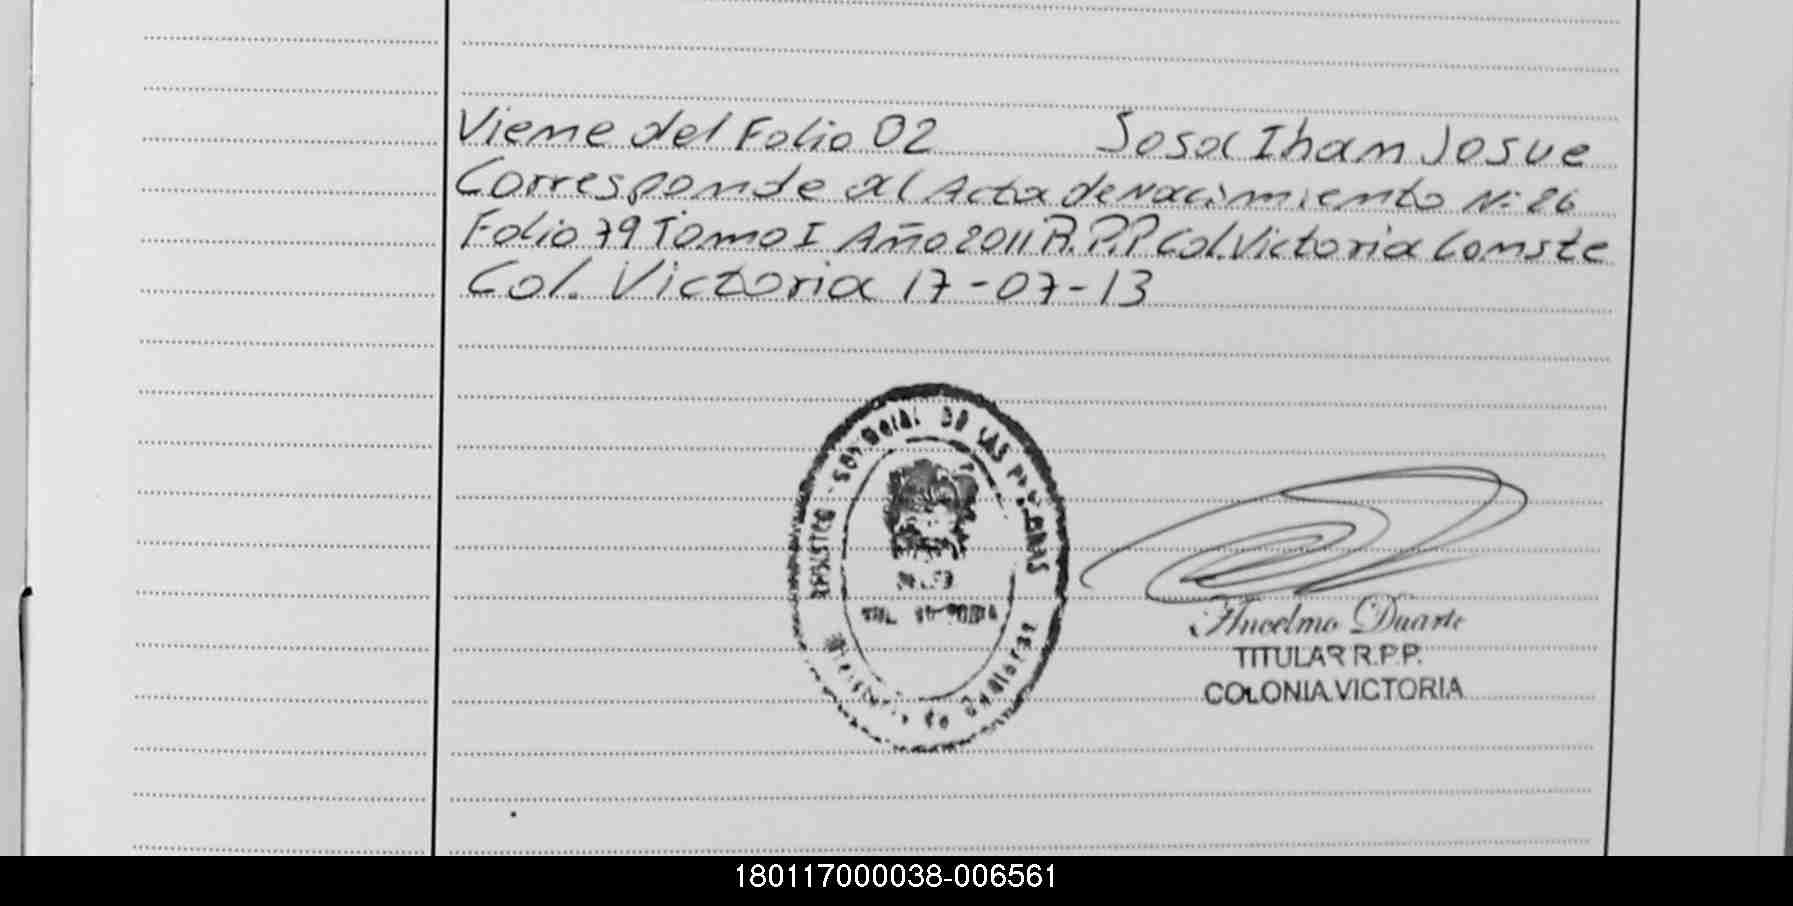 Viene del Folio 02 Sosa Ihan Josue
Corresponde al Acta de Nacimiento N: 26
Folio 79 Tomo I Año 2011 R.P.P Col. Victoria Conste
Col. Victoria 17-07-13
REGISTRO PROVINCIAL DE LAS PERSONAS
Ministerio de Gobierno
Ancelmo Duarte
TITULAR R.P.P.
COLONIA VICTORIA
180117000038-006561